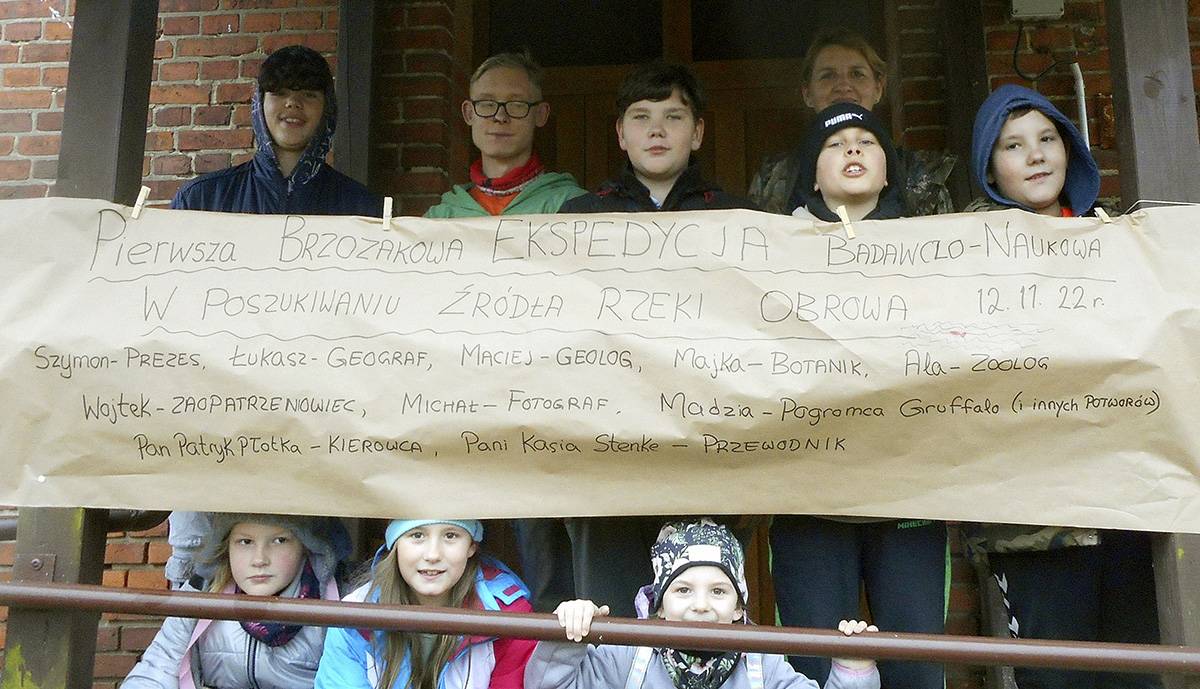 PUMA
Pierwsza BRZOZAKOWA EKSPEDYCJA BADAWCZO-NAUKOWA
W POSZUKIWANIU ŹRÓDŁA RZEKI OBROWA 12.11.22r.
Szymon-PREZES, ŁUKASZ-GEOGRAF, MACIEJ-GEOLOG, MAJKA-BOTANIK, Ala-ZOOLOG
Wojtek-ZAOPATRZENIOWIEC, MICHAŁ-FOTOGRAF, Madzia-Pogromca Gruffalo (i innych POTWORÓW)
Pan Patryk Płotka-KIEROWCA, Pani Kasia Stenke-PRZEWODNIK
MINECR